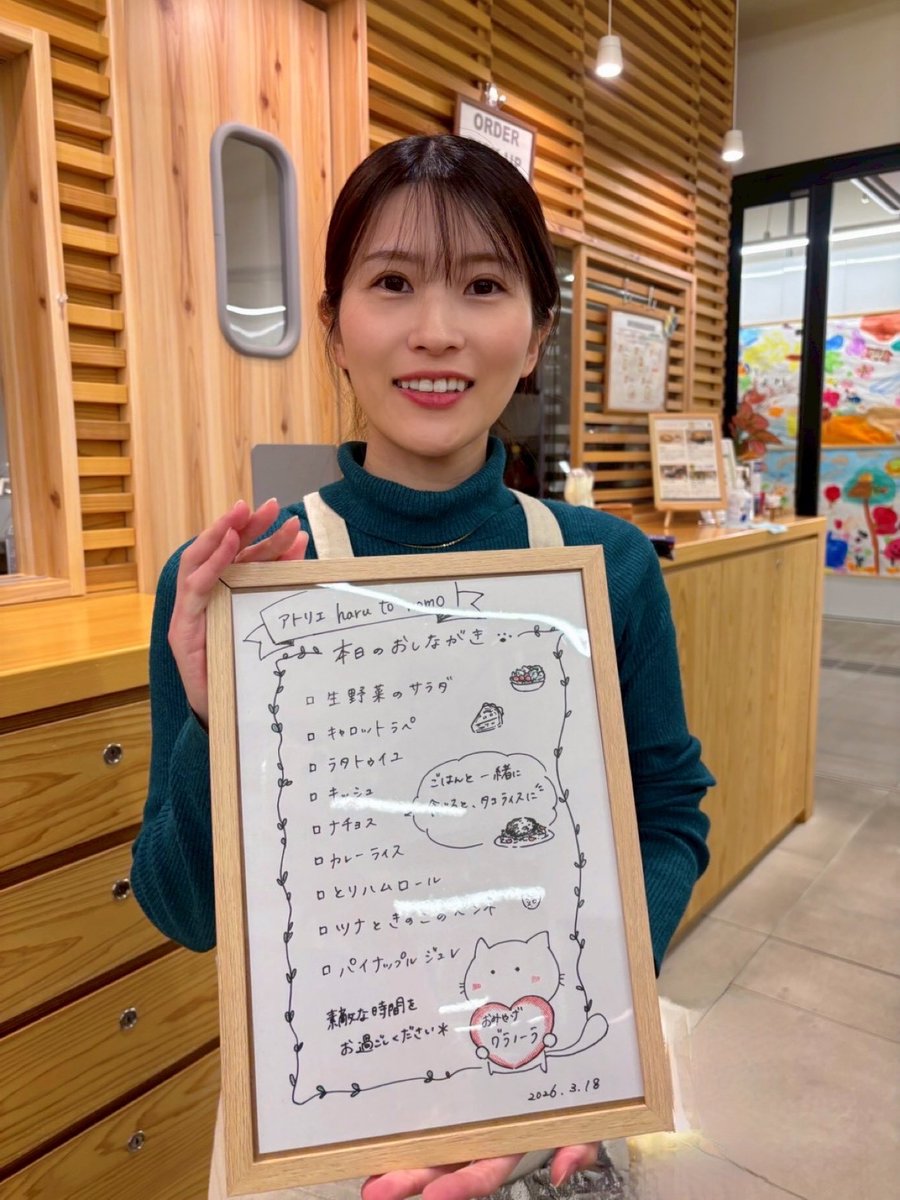 ORDER
アトリエ haru to momo
本日のおしながき
□ 生野菜のサラダ
□ キャロットラペ
□ ラタトゥイユ
□ キッシュ
□ ナチョス
□ カレーライス
□ とりハムロール
□ ツナときのこの
□ パイナップルジュレ
ごはんと一緒に
タコライスに
素敵な時間を
お過ごしください*
おみやげ
グラノーラ
2026.3.18